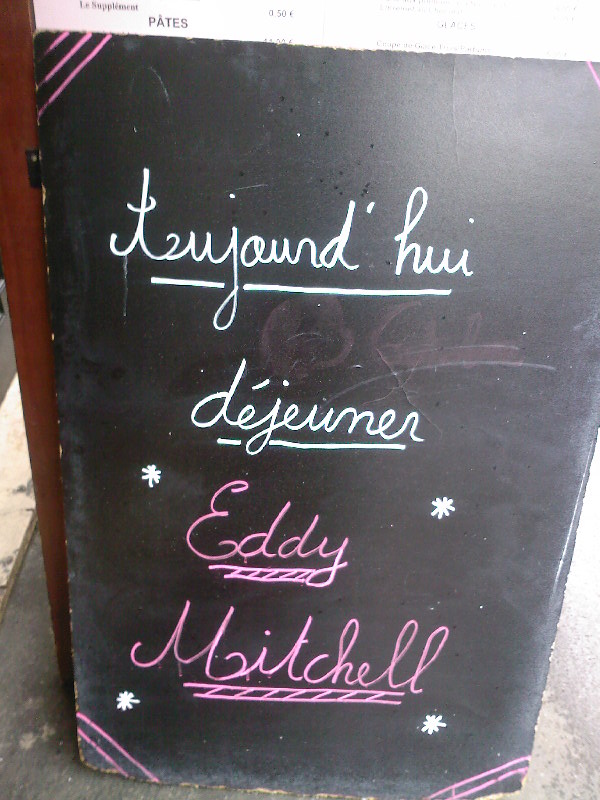 Le Supplément 0.50 €
PÂTES
GLACES
Aujourd'hui
déjeuner
Eddy
Mitchell